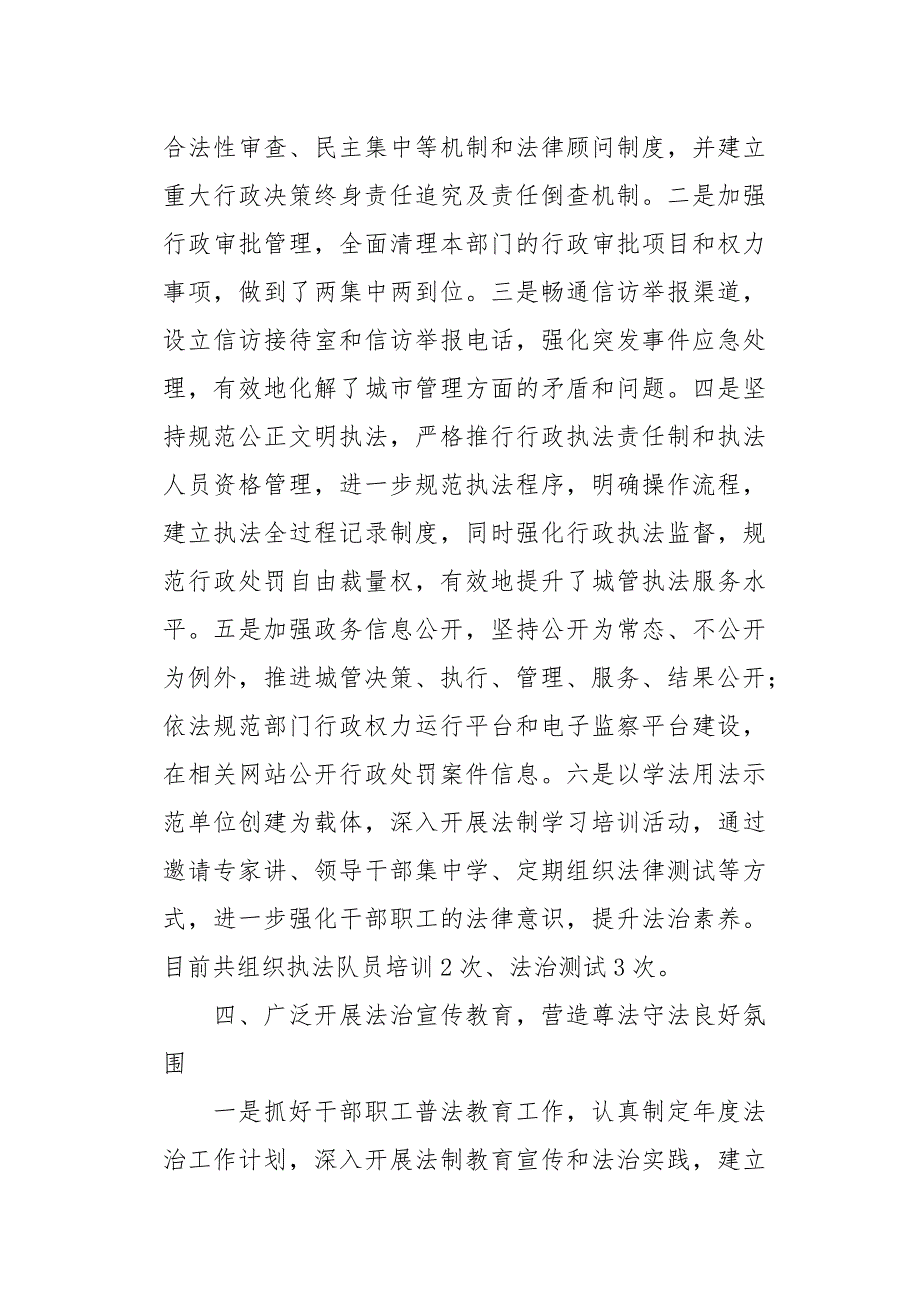 合法性审查、民主集中等机制和法律顾问制度，并建立
重大行政决策终身责任追究及责任倒查机制。二是加强
行政审批管理，全面清理本部门的行政审批项目和权力
事项，做到了两集中两到位。三是畅通信访举报渠道，
设立信访接待室和信访举报电话，强化突发事件应急处
理，有效地化解了城市管理方面的矛盾和问题。四是坚
持规范公正文明执法，严格推行行政执法责任制和执法
人员资格管理，进一步规范执法程序，明确操作流程，
建立执法全过程记录制度，同时强化行政执法监督，规
范行政处罚自由裁量权，有效地提升了城管执法服务水
平。五是加强政务信息公开，坚持公开为常态、不公开
为例外，推进城管决策、执行、管理、服务、结果公开；
依法规范部门行政权力运行平台和电子监察平台建设，
在相关网站公开行政处罚案件信息。六是以学法用法示
范单位创建为载体，深入开展法制学习培训活动，通过
邀请专家讲、领导干部集中学、定期组织法律测试等方
式，进一步强化干部职工的法律意识，提升法治素养。
目前共组织执法队员培训2次、法治测试3次。
四、广泛开展法治宣传教育，营造尊法守法良好氛
围
一是抓好干部职工普法教育工作，认真制定年度法
治工作计划，深入开展法制教育宣传和法治实践，建立